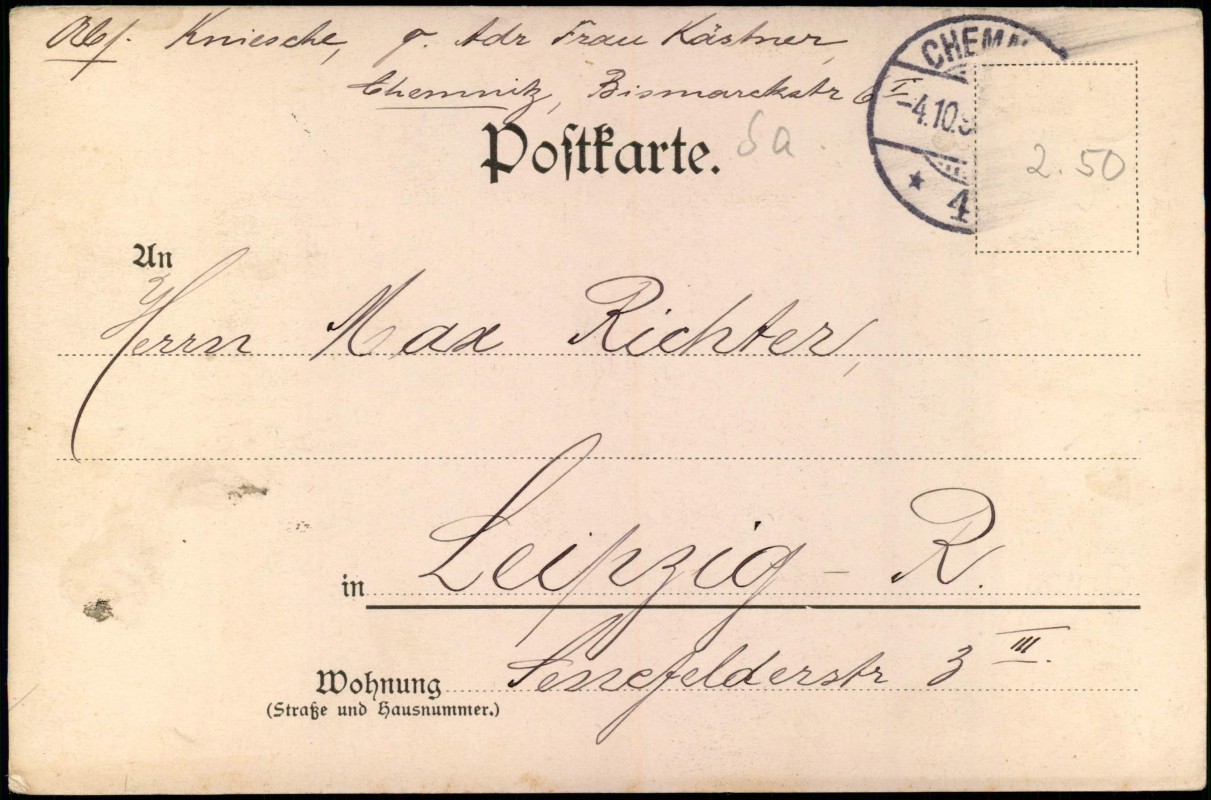 Abs. Kniesche, p. Adr Frau Kästner,
Chemnitz, Bismarckstr 6 I
Postkarte.
CHEMN
-4.10.
* 4
2.50
An
Herrn Max Richter,
in Leipzig - R.
Wohnung Senefelderstr 3 III.
(Straße und Hausnummer.)